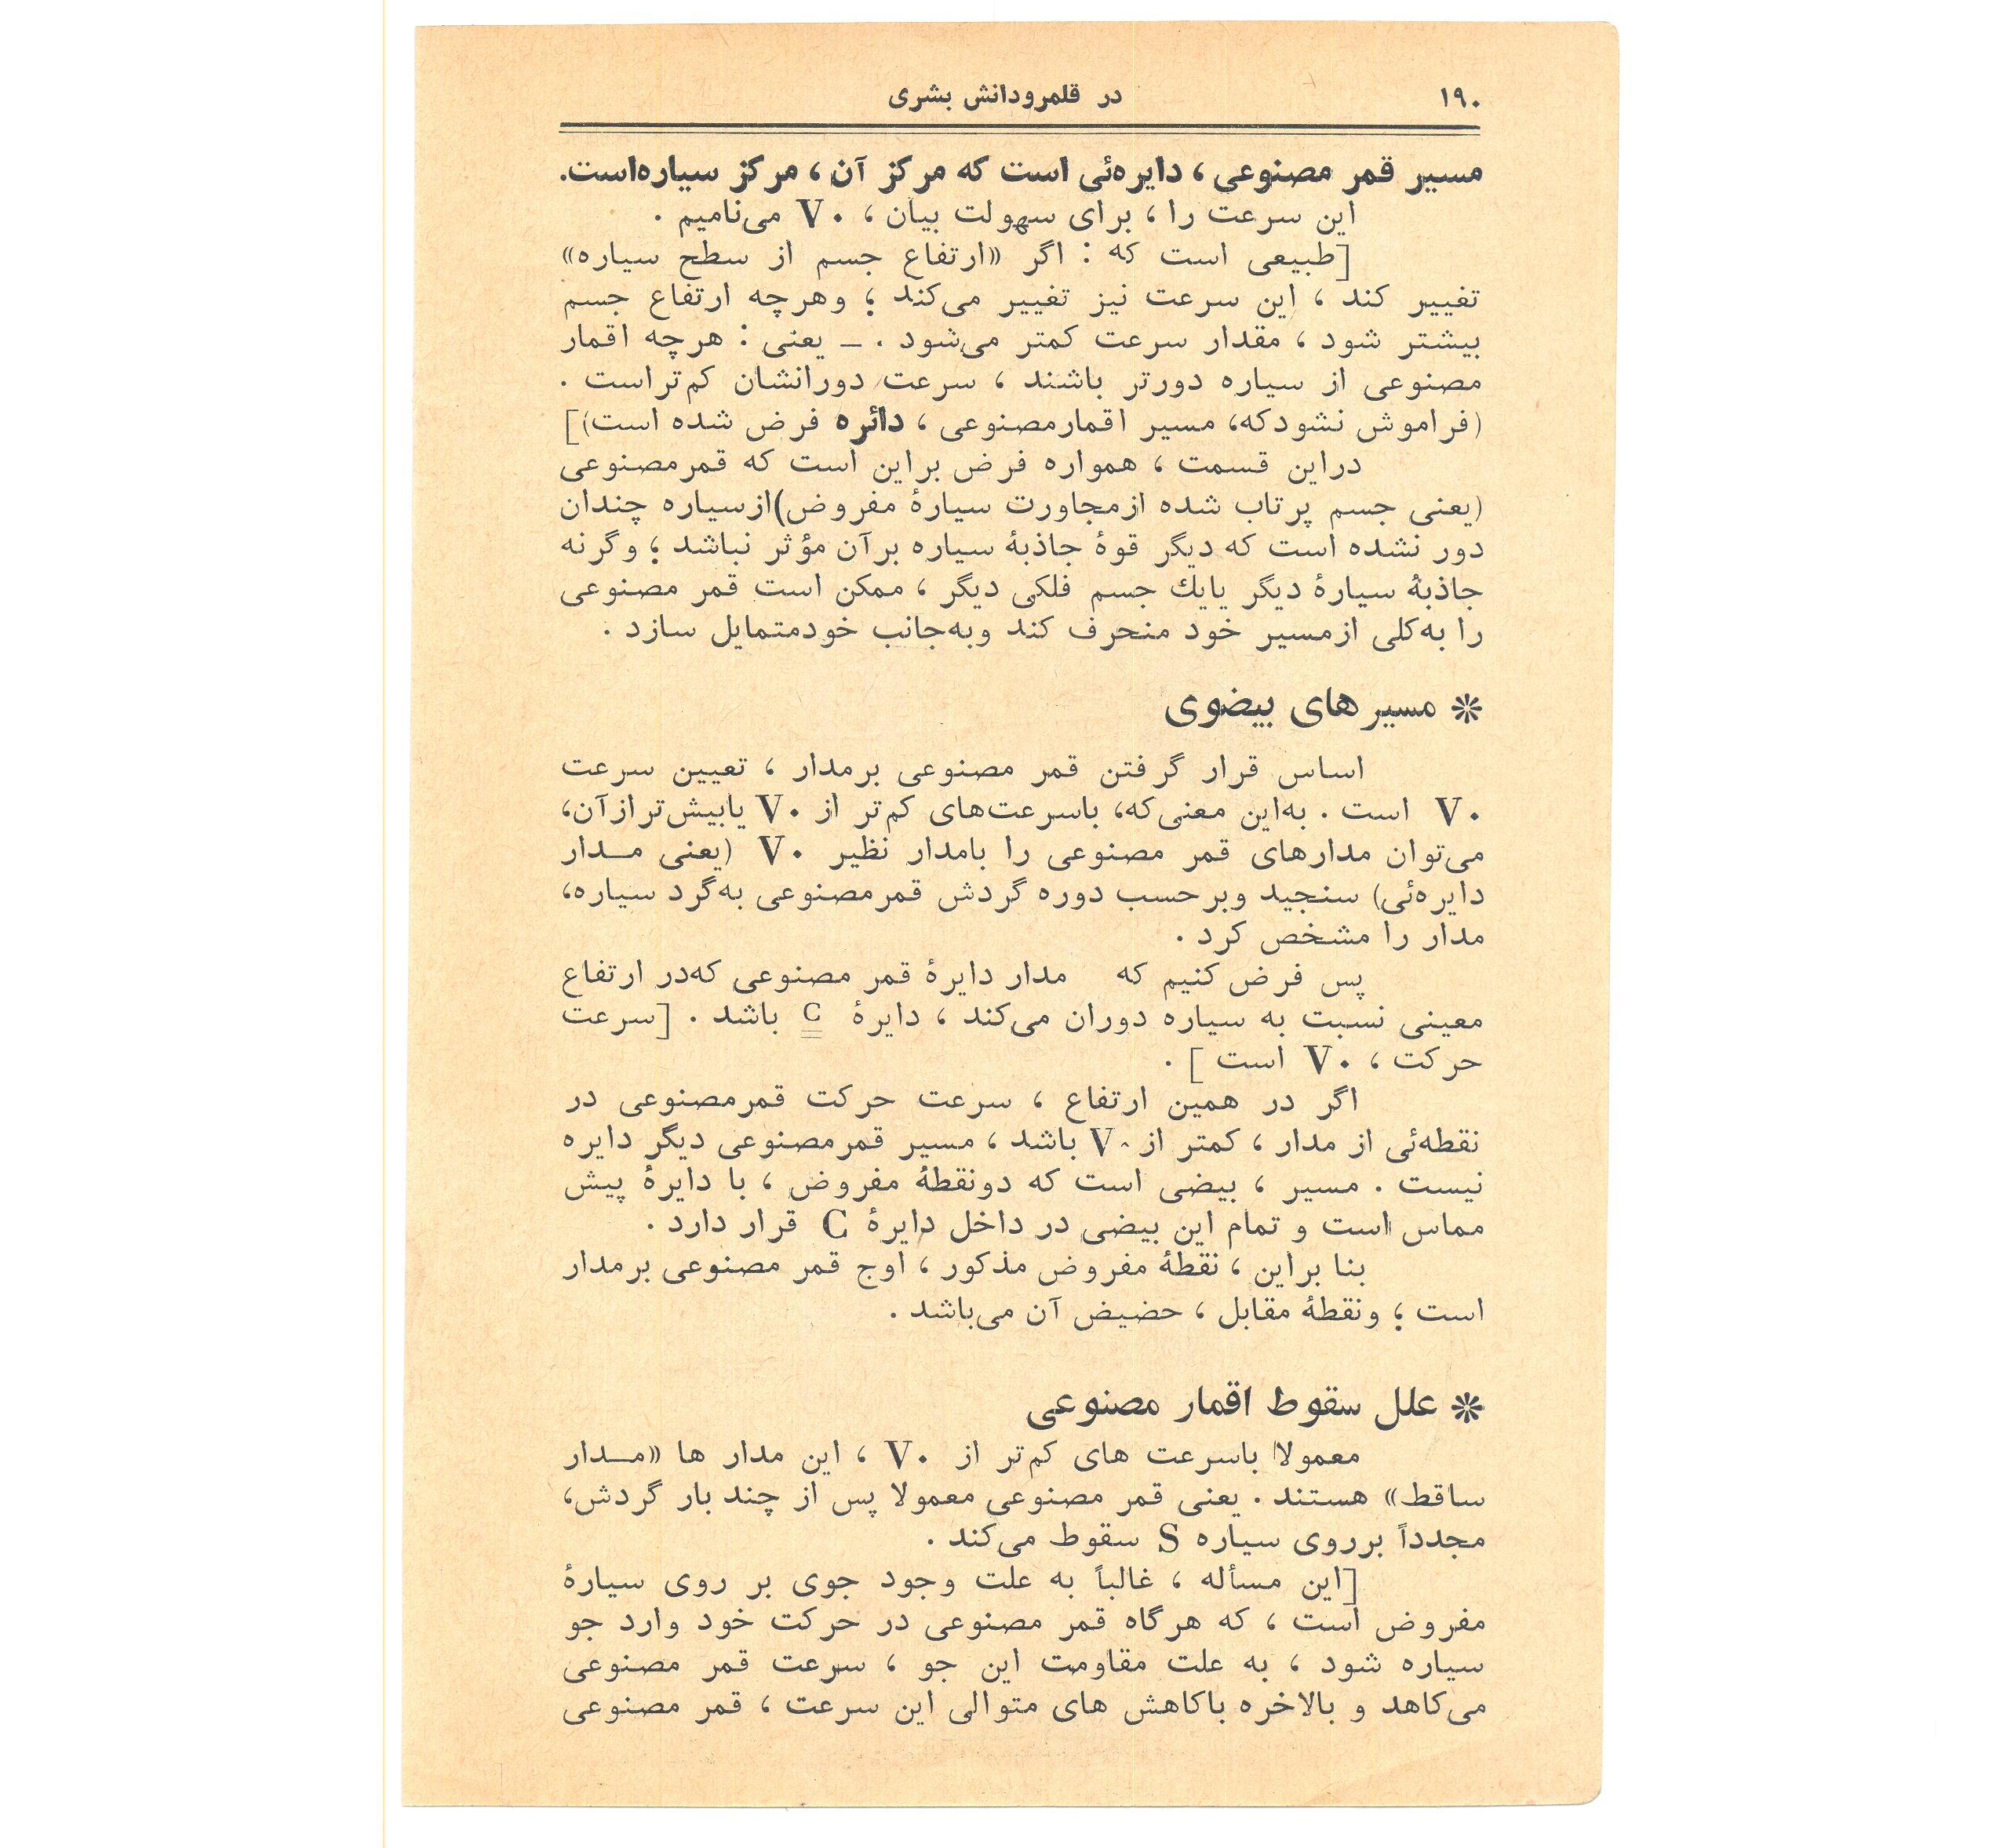 ۱۹۰ در قلمرودانش بشری
مسیر قمر مصنوعی ، دایره‌ئی است که مرکز آن ، مرکز سیاره‌است.
این سرعت را ، برای سهولت بیان ، V۰ می‌نامیم .
[طبیعی است که : اگر «ارتفاع جسم از سطح سیاره»
تغییر کند ، این سرعت نیز تغییر می‌کند ؛ وهرچه ارتفاع جسم
بیشتر شود ، مقدار سرعت کمتر می‌شود . ــ یعنی : هرچه اقمار
مصنوعی از سیاره دورتر باشند ، سرعت دورانشان کم‌تراست .
(فراموش نشودکه، مسیر اقمارمصنوعی ، دائره فرض شده است)]
دراین قسمت ، همواره فرض براین است که قمرمصنوعی
(یعنی جسم پرتاب شده ازمجاورت سیارۀ مفروض)ازسیاره چندان
دور نشده است که دیگر قوۀ جاذبۀ سیاره برآن مؤثر نباشد ؛ وگرنه
جاذبۀ سیارۀ دیگر یایك جسم فلکی دیگر ، ممکن است قمر مصنوعی
را به‌کلی ازمسیر خود منحرف کند وبه‌جانب خودمتمایل سازد .
* مسیرهای بیضوی
اساس قرار گرفتن قمر مصنوعی برمدار ، تعیین سرعت
V۰ است . به‌این معنی‌که، باسرعت‌های کم‌تر از V۰ یابیش‌ترازآن،
می‌توان مدارهای قمر مصنوعی را بامدار نظیر V۰ (یعنی مـدار
دایره‌ئی) سنجید وبرحسب دوره گردش قمرمصنوعی به‌گرد سیاره،
مدار را مشخص کرد .
پس فرض کنیم که مدار دایرۀ قمر مصنوعی که‌در ارتفاع
معینی نسبت به سیاره دوران می‌کند ، دایرۀ C باشد . [سرعت
حرکت ، V۰ است ] .
اگر در همین ارتفاع ، سرعت حرکت قمرمصنوعی در
نقطه‌ئی از مدار ، کمتر از V۰ باشد ، مسیر قمرمصنوعی دیگر دایره
نیست . مسیر ، بیضی است که دونقطۀ مفروض ، با دایرۀ پیش
مماس است و تمام این بیضی در داخل دایرۀ C قرار دارد .
بنا براین ، نقطۀ مفروض مذکور ، اوج قمر مصنوعی برمدار
است ؛ ونقطۀ مقابل ، حضیض آن می‌باشد .
* علل سقوط اقمار مصنوعی
معمولا باسرعت های کم‌تر از V۰ ، این مدار ها «مـدار
ساقط» هستند . یعنی قمر مصنوعی معمولا پس از چند بار گردش،
مجدداً برروی سیاره S سقوط می‌کند .
[این مسأله ، غالباً به علت وجود جوی بر روی سیارۀ
مفروض است ، که هرگاه قمر مصنوعی در حرکت خود وارد جو
سیاره شود ، به علت مقاومت این جو ، سرعت قمر مصنوعی
می‌کاهد و بالاخره باکاهش های متوالی این سرعت ، قمر مصنوعی